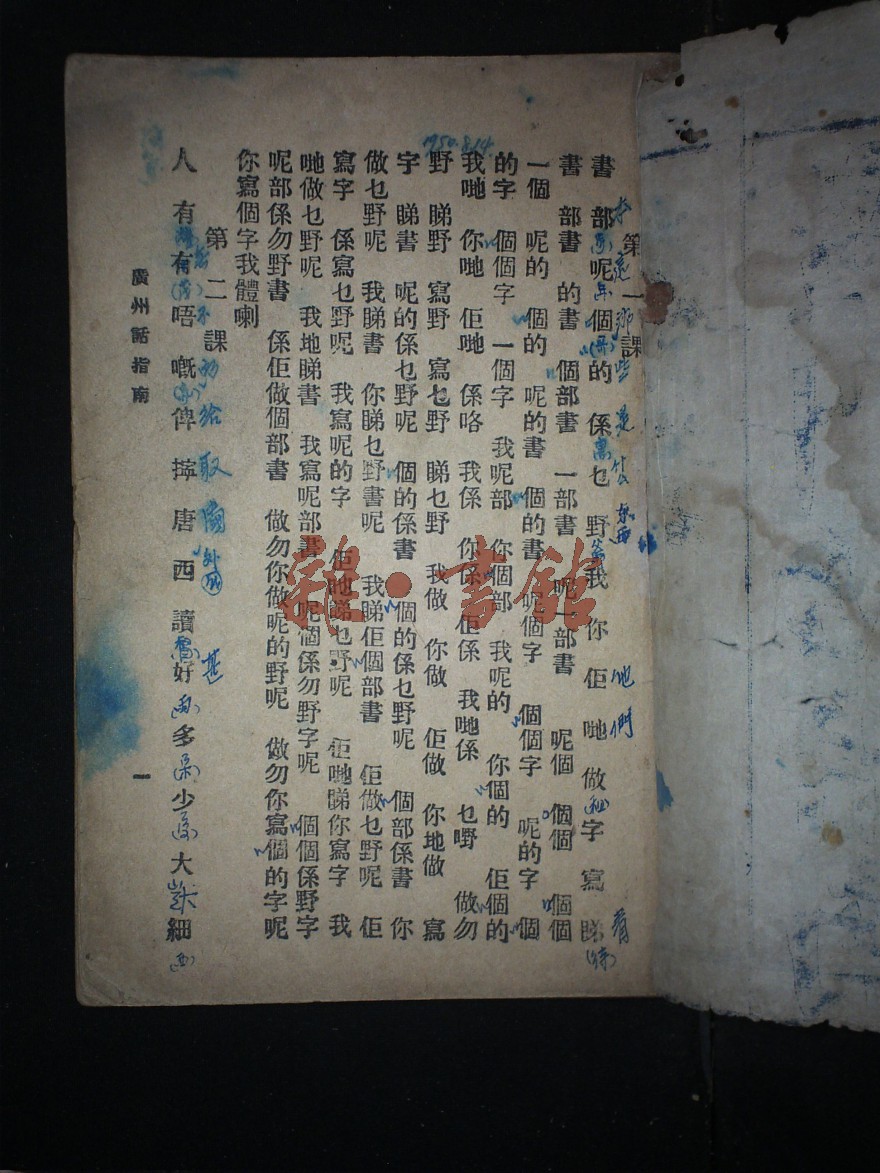 第一課
書 部 呢 個 的 係 乜 野 我 你 佢 哋 做 字 寫 睇
書 部書 的書 個部書 一部書 呢一部書 呢個 個個 個個
一個 呢的 個的 呢的書 個的書 呢個字 個個字 呢的字 個
的字 個個字 一個字 我呢部 你個部 我呢的 你個的 佢個的
我哋 你哋 佢哋 係咯 我係 你係 佢係 我哋係 乜嘢 做勿
野 睇野 寫野 寫乜野 睇乜野 我做 你做 佢做 你地做 寫
字 睇書 呢的係乜野呢 個的係書 個的係乜野呢 個部係書 你
做乜野呢 我睇書 你睇乜野書呢 我睇佢個部書 佢做乜野呢 佢
寫字 係寫乜野呢 我寫呢的字 佢哋睇乜野呢 佢哋睇你寫字 我
哋做乜野呢 我地睇書 我寫呢部書 呢個係勿野字呢 個個係野字
呢部係勿野書 係佢做個部書 做勿你做呢的野呢 做勿你寫個的字呢
你寫個字我體喇
第二課
人 有 冇 唔 嘅 俾 擰 唐 西 讀 好 多 少 大 細
廣州話指南
一
1950.8.14
他們
看
東西
給
取
國
雜·書館